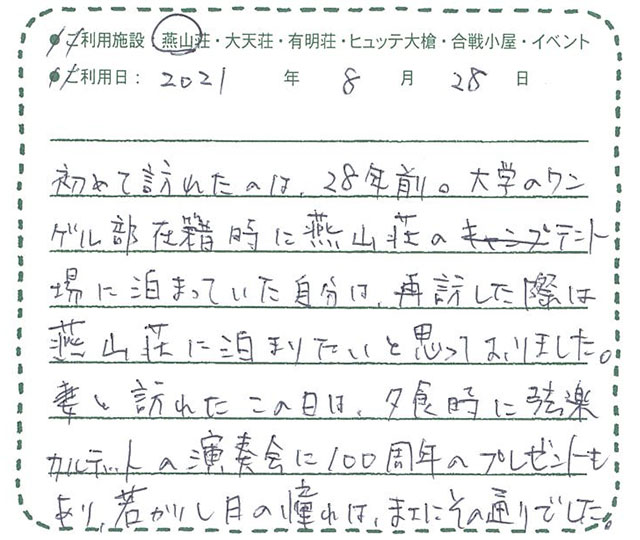 ご利用施設 燕山荘・大天荘・有明荘・ヒュッテ大槍・合戦小屋・イベント
ご利用日： 2021 年 8 月 28 日
初めて訪れたのは、28年前。大学のワン
ゲル部在籍時に燕山荘のキャンプテント
場に泊まっていた自分は、再訪した際は
燕山荘に泊まりたいと思っておりました。
妻と訪れたこの日は、夕食時に弦楽
カルテットの演奏会に100周年のプレゼントも
あり、若かりし日の憧れは、まさにその通りでした。